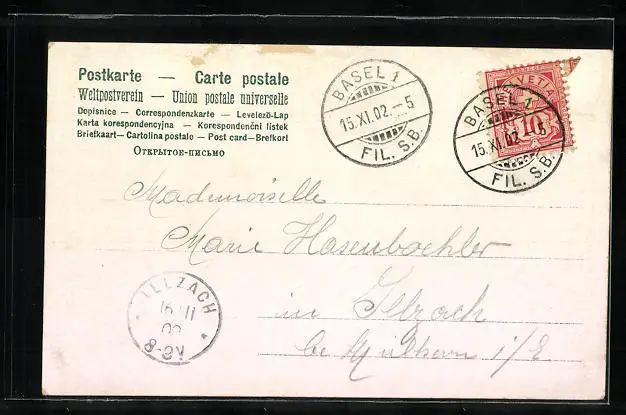 Postkarte — Carte postale
Weltpostverein — Union postale universelle
Dopisnice — Correspondenzkarte — Levelező-Lap
Karta korespondencyjna — Korespondenční lístek
Briefkaart — Cartolina postale — Post card — Brefkort
Открытое-письмо
BASEL 1
15.XI.02.–5
FIL. S.B.
HELVETIA
10
BASEL 1
15.XI.02.–5
FIL. S.B.
Mademoiselle
Marie Hasenboehler
in Illzach
be Mülhausen i/E
ILLZACH
16 11
02
8-9V